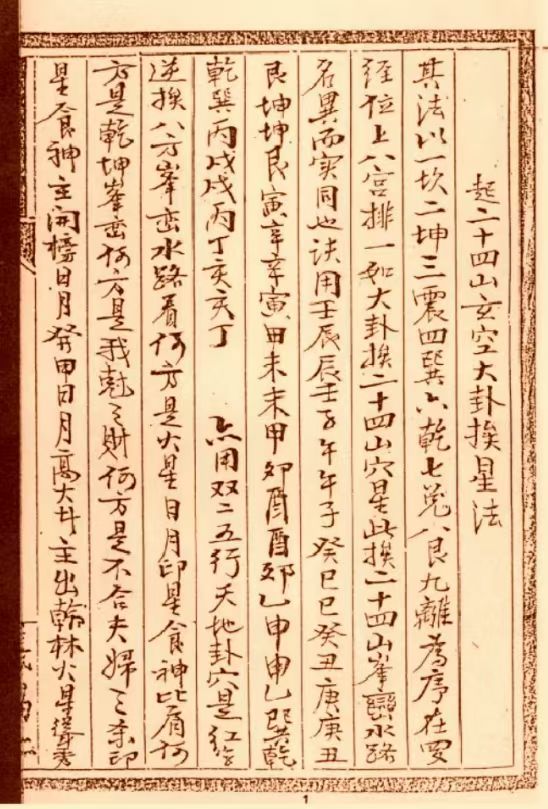 起二十四山玄空大卦挨星法
其法以一坎二坤三震四巽六乾七兌八艮九離為序在罗
经位上八宮排一如大卦挨二十四山穴星此挨二十四山峯巒水路
名異而实同也诀用壬辰辰壬子午午子癸巳巳癸丑庚庚丑
艮坤坤艮寅辛辛寅甲未未甲卯酉酉卯乙申申乙巽乾
乾巽丙戌戌丙丁亥亥丁 亦用双二五行天地卦穴是红
逆挨八方峯峦水路看何方是火星日月印星食神比肩何
方是乾坤峯峦何方是我尅之財何方是不合夫婦之杀印
星食神主開榜日月癸甲日月高大主出翰林火星秀
1